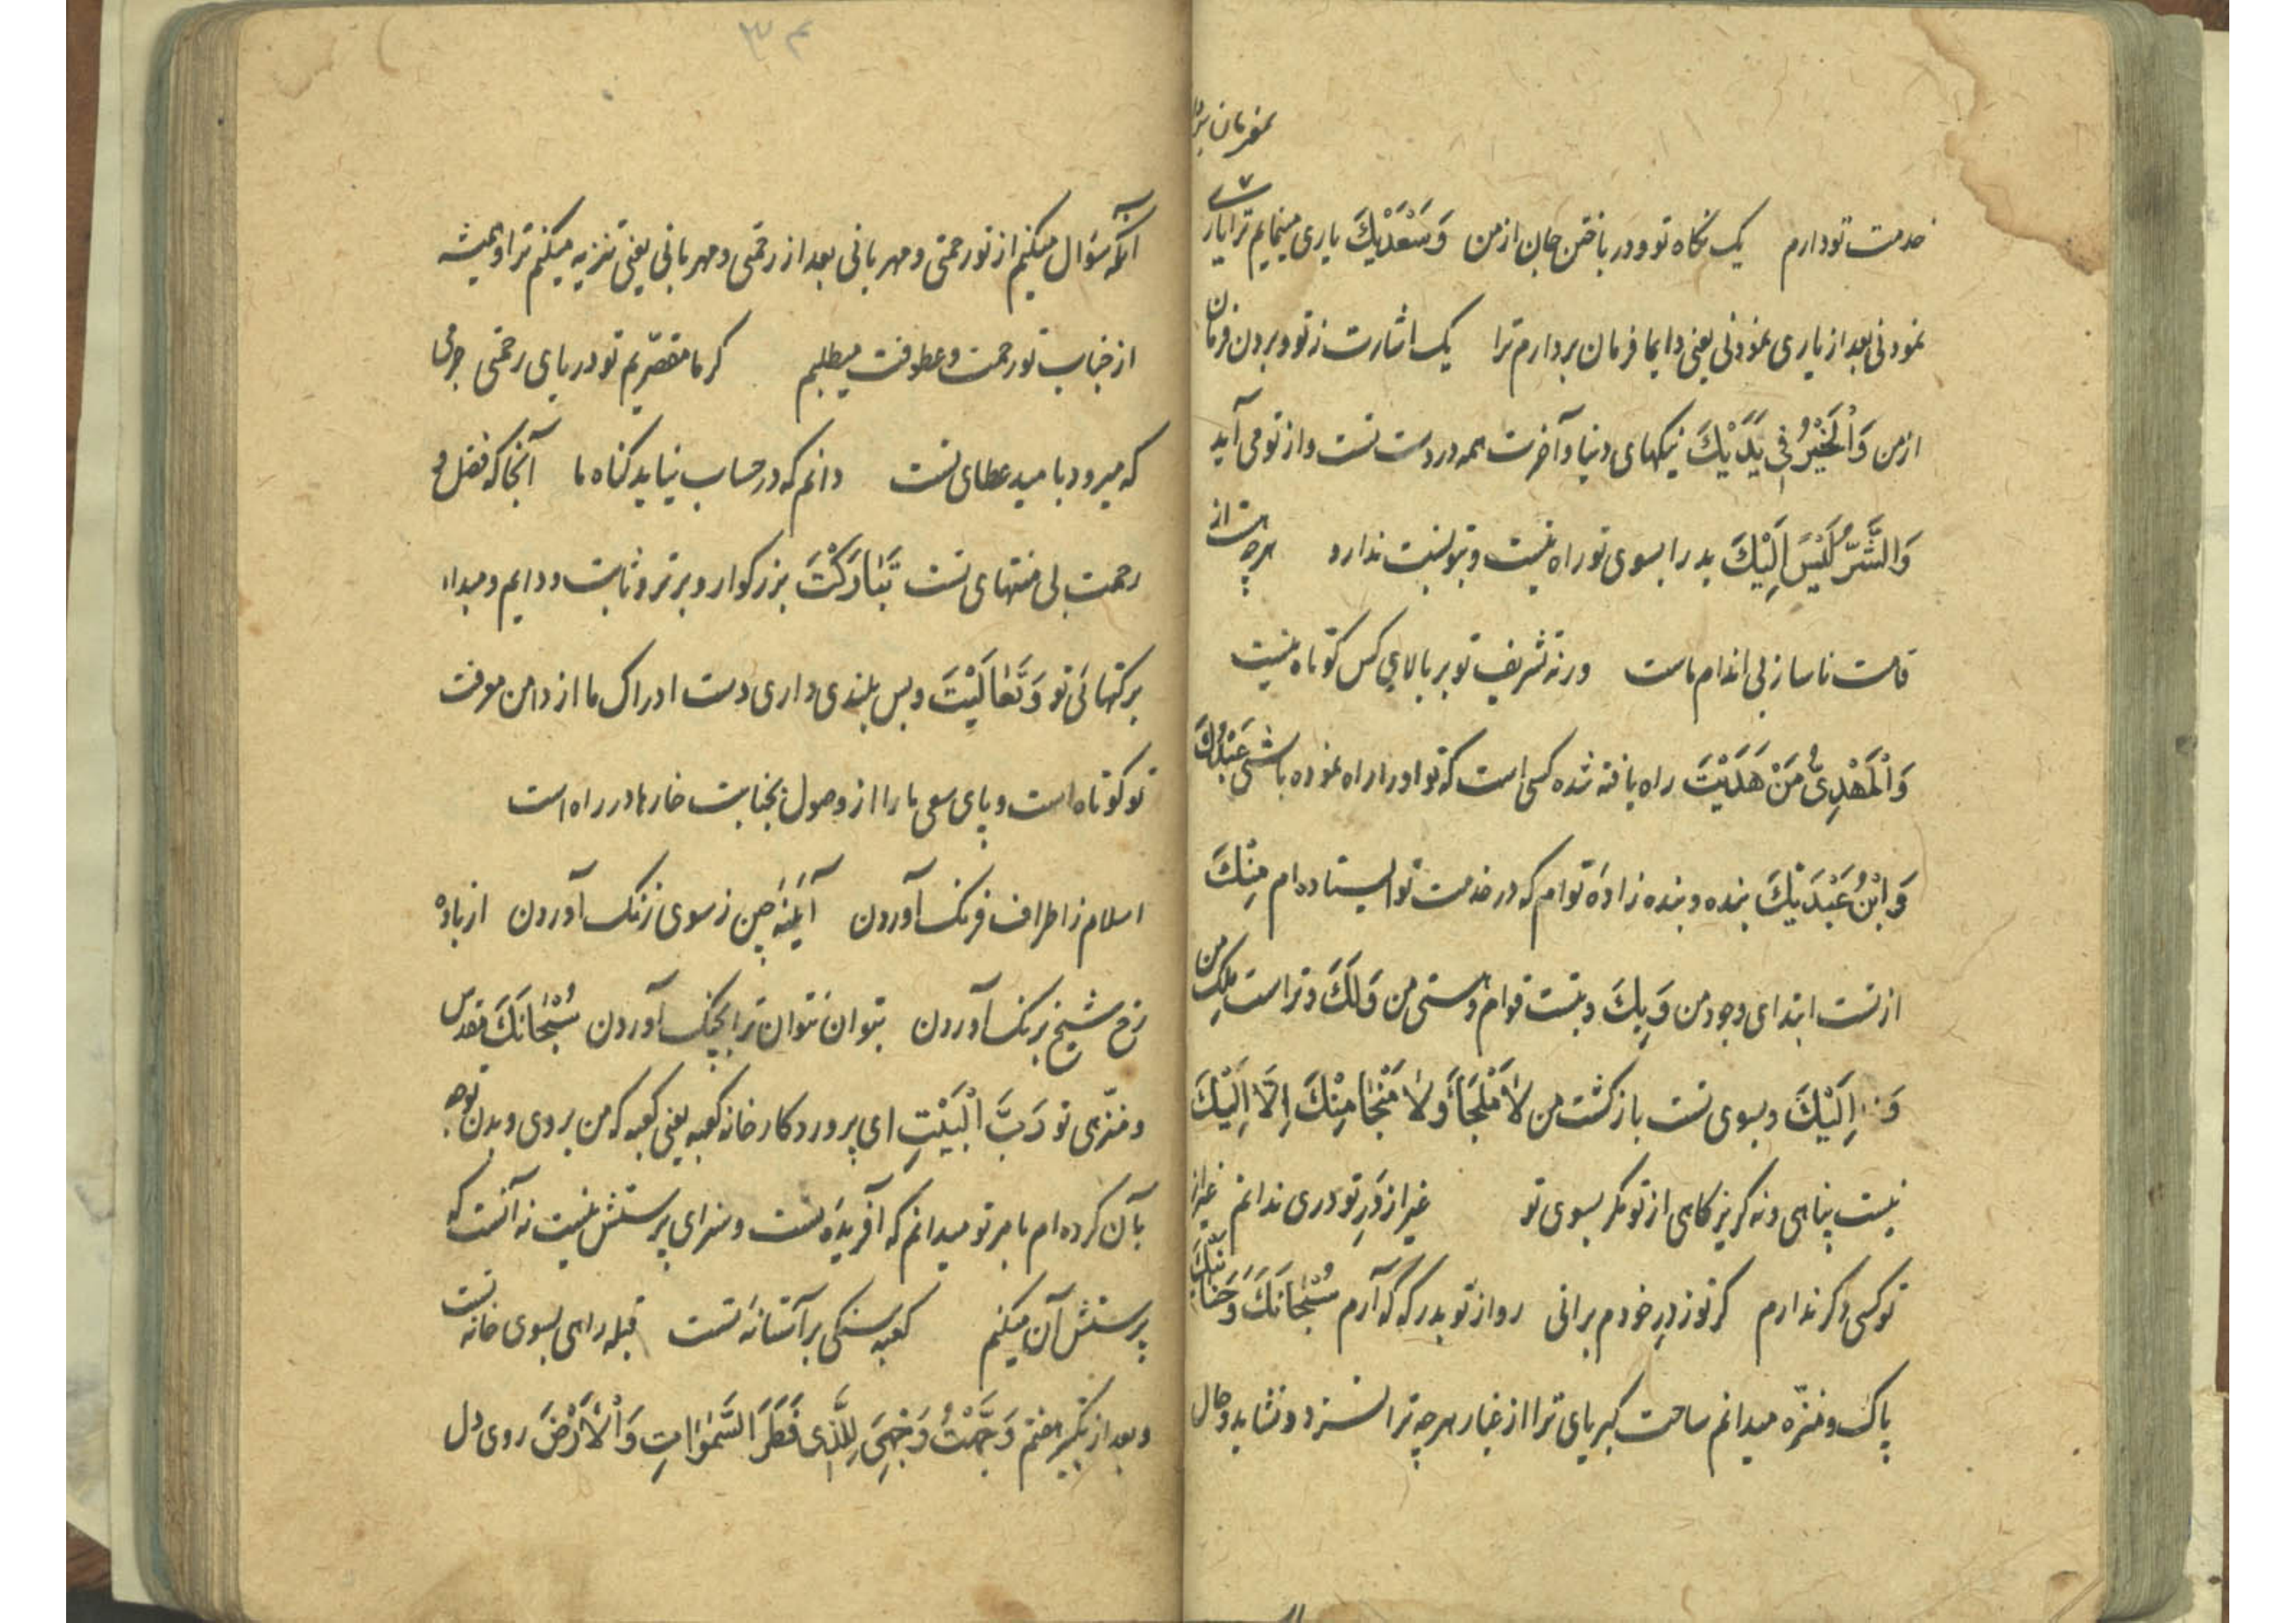 بفرمان بری
خدمت تو دارم یک نگاه تو و در باختن جان از من وَسَعْدَیْكَ یاری مینمایم ترا یاری
نمودنی بعد از یاری نمودنی یعنی دایما فرمان بردارم ترا یک اشارت ز تو و بردن فرمان
از من وَالْخَیْرُ فِی یَدَیْكَ نیکیهای دنیا و آخرت همه در دست تست و از تو می آید
وَالشَّرُّ لَیْسَ اِلَیْكَ بد را بسوی تو راه نیست و بتو نسبت ندارد هر چه هست از
قامت ناساز بی اندام ماست ورنه تشریف تو بر بالای کس کوتاه نیست
وَالْمَهْدِیُّ مَنْ هَدَیْتَ راه یافته شده کسی است که تو او را راه نموده باشی عَبْدُكَ
وَابْنُ عَبْدَیْكَ بنده و بنده زادهٔ توام که در خدمت تو ایستاده ام مِنْكَ
از تست ابتدای وجود من وَبِكَ و بتست قوام و هستی من وَلَكَ و تراست ملک من
وَ اِلَیْكَ و بسوی تست بازکشت من لَا مَلْجَأَ وَلَا مَنْجَا مِنْكَ اِلَّا اِلَیْكَ
نیست پناهی و نه کریزکاهی از تو مکر بسوی تو غیر از دَرِ تو دری ندانم غیر از
تو کسی دکر ندارم کر تو ز درِ خودم برانی رو از تو بدرکه که آرم سُبْحَانَكَ وَحَنَانَیْكَ
پاک و منزّه میدانم ساحت کبریای ترا از غبار هر چه ترا نسزد و نشاید و حال
۳۴
آنکه سؤال میکنم از تو رحمتی و مهربانی بعد از رحمتی و مهربانی یعنی تنزیه میکنم ترا و همیشه
از جناب تو رحمت و عطوفت میطلبم کر ما مقصّریم تو دریای رحمتی جرمی
که میرود بامید عطای تست دانم که در حساب نیاید کناه ما آنجا که فضل و
رحمت بی منتهای تست تَبَارَكْتَ بزرکوار و برتر و ثابت و دایم و مبداء
برکتهائی تو وَتَعَالَیْتَ و بس بلندی داری دست ادراک ما از دامن معرفت
تو کوتاه است و پای سعی ما را از وصول بجنابت خارها در راه است
اسلام ز اطراف فرنک آوردن آیینهٔ چین ز سوی زنک آوردن از باده
رخ شیخ برنک آوردن بتوان نتوان ترا بچنک آوردن سُبْحَانَكَ تقدس
و منزّهی تو رَبَّ الْبَیْتِ ای پروردکار خانه کعبه یعنی کعبه که من بروی و بدن توجه
بآن کرده ام بامر تو میدانم که آفریدهٔ تست و سزای پرستش نیست نه آنست که
پرستش آن میکنم کعبه سنکی بر آستانهٔ تست قبله راهی بسوی خانه تست
و بعد از تکبیر هفتم وَجَّهْتُ وَجْهِیَ لِلَّذِی فَطَرَ السَّمٰوَاتِ وَالْاَرْضَ روی دل